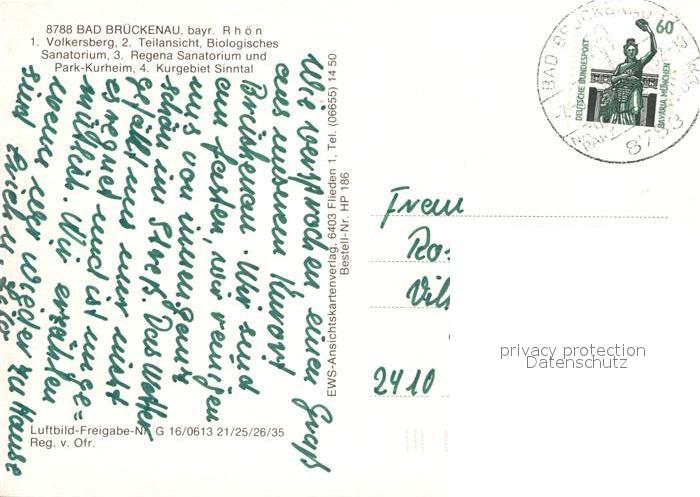 8788 BAD BRÜCKENAU, bayr. Rhön
1. Volkersberg, 2. Teilansicht, Biologisches
Sanatorium, 3. Regena Sanatorium und
Park-Kurheim, 4. Kurgebiet Sinntal
Wir versprochen einen Gruß
aus unserem Kurort
Brückenau. Wir sind
am fasten, wir reinigen
uns von innen ganz
schön im Streß. Das Wetter
gefällt uns nur nicht
es regnet und ist unge=
mütlich. Wir erzählen
wenn wir wieder zu Hause
sind
EWS-Ansichtskartenverlag, 6403 Flieden 1, Tel. (06655) 14 50
Bestell-Nr. HP 186
Luftbild-Freigabe-Nr. G 16/0613 21/25/26/35
Reg. v. Ofr.
60
DEUTSCHE BUNDESPOST
BAVARIA MÜNCHEN
BAD BRÜCKENAU
Frau
Ro
Vils
2410
privacy protection
Datenschutz